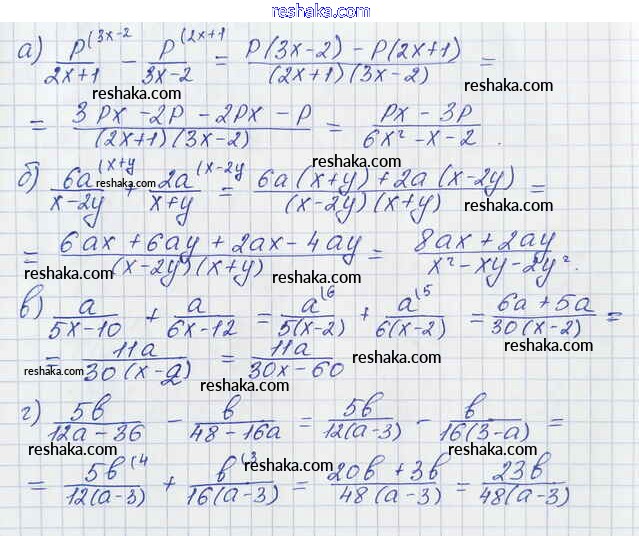 reshaka.com
а) p^(3x-2 / 2x+1 - p^(2x+1 / 3x-2 = p(3x-2) - p(2x+1) / (2x+1)(3x-2) =
reshaka.com reshaka.com reshaka.com
= 3px - 2p - 2px - p / (2x+1)(3x-2) = px - 3p / 6x² - x - 2 .
reshaka.com
б) 6a^(x+y / x-2y + 2a^(x-2y / x+y = 6a(x+y) + 2a(x-2y) / (x-2y)(x+y) =
reshaka.com reshaka.com
= 6ax + 6ay + 2ax - 4ay / (x-2y)(x+y) = 8ax + 2ay / x² - xy - 2y² .
reshaka.com reshaka.com reshaka.com
в) a / 5x-10 + a / 6x-12 = a^(6 / 5(x-2) + a^(5 / 6(x-2) = 6a + 5a / 30(x-2) =
reshaka.com reshaka.com
= 11a / 30(x-2) = 11a / 30x-60
reshaka.com reshaka.com
г) 5b / 12a-36 - b / 48-16a = 5b / 12(a-3) - b / 16(3-a) =
reshaka.com reshaka.com reshaka.com
= 5b^(4 / 12(a-3) + b^(3 / 16(a-3) = 20b + 3b / 48(a-3) = 23b / 48(a-3)
reshaka.com reshaka.com reshaka.com